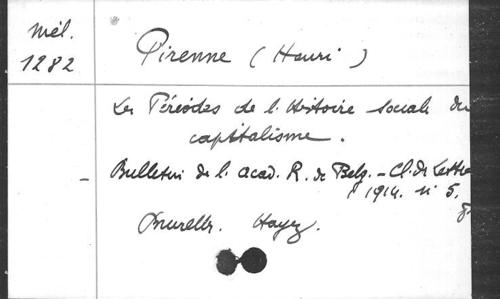 Mél.
1282
Pirenne (Henri)
Les Périodes de l'Histoire sociale du
capitalisme.
- Bulletin de l'acad. R. de Belg. - Cl. de Lettres
1914. n° 5.
Bruxelles. Hayez.